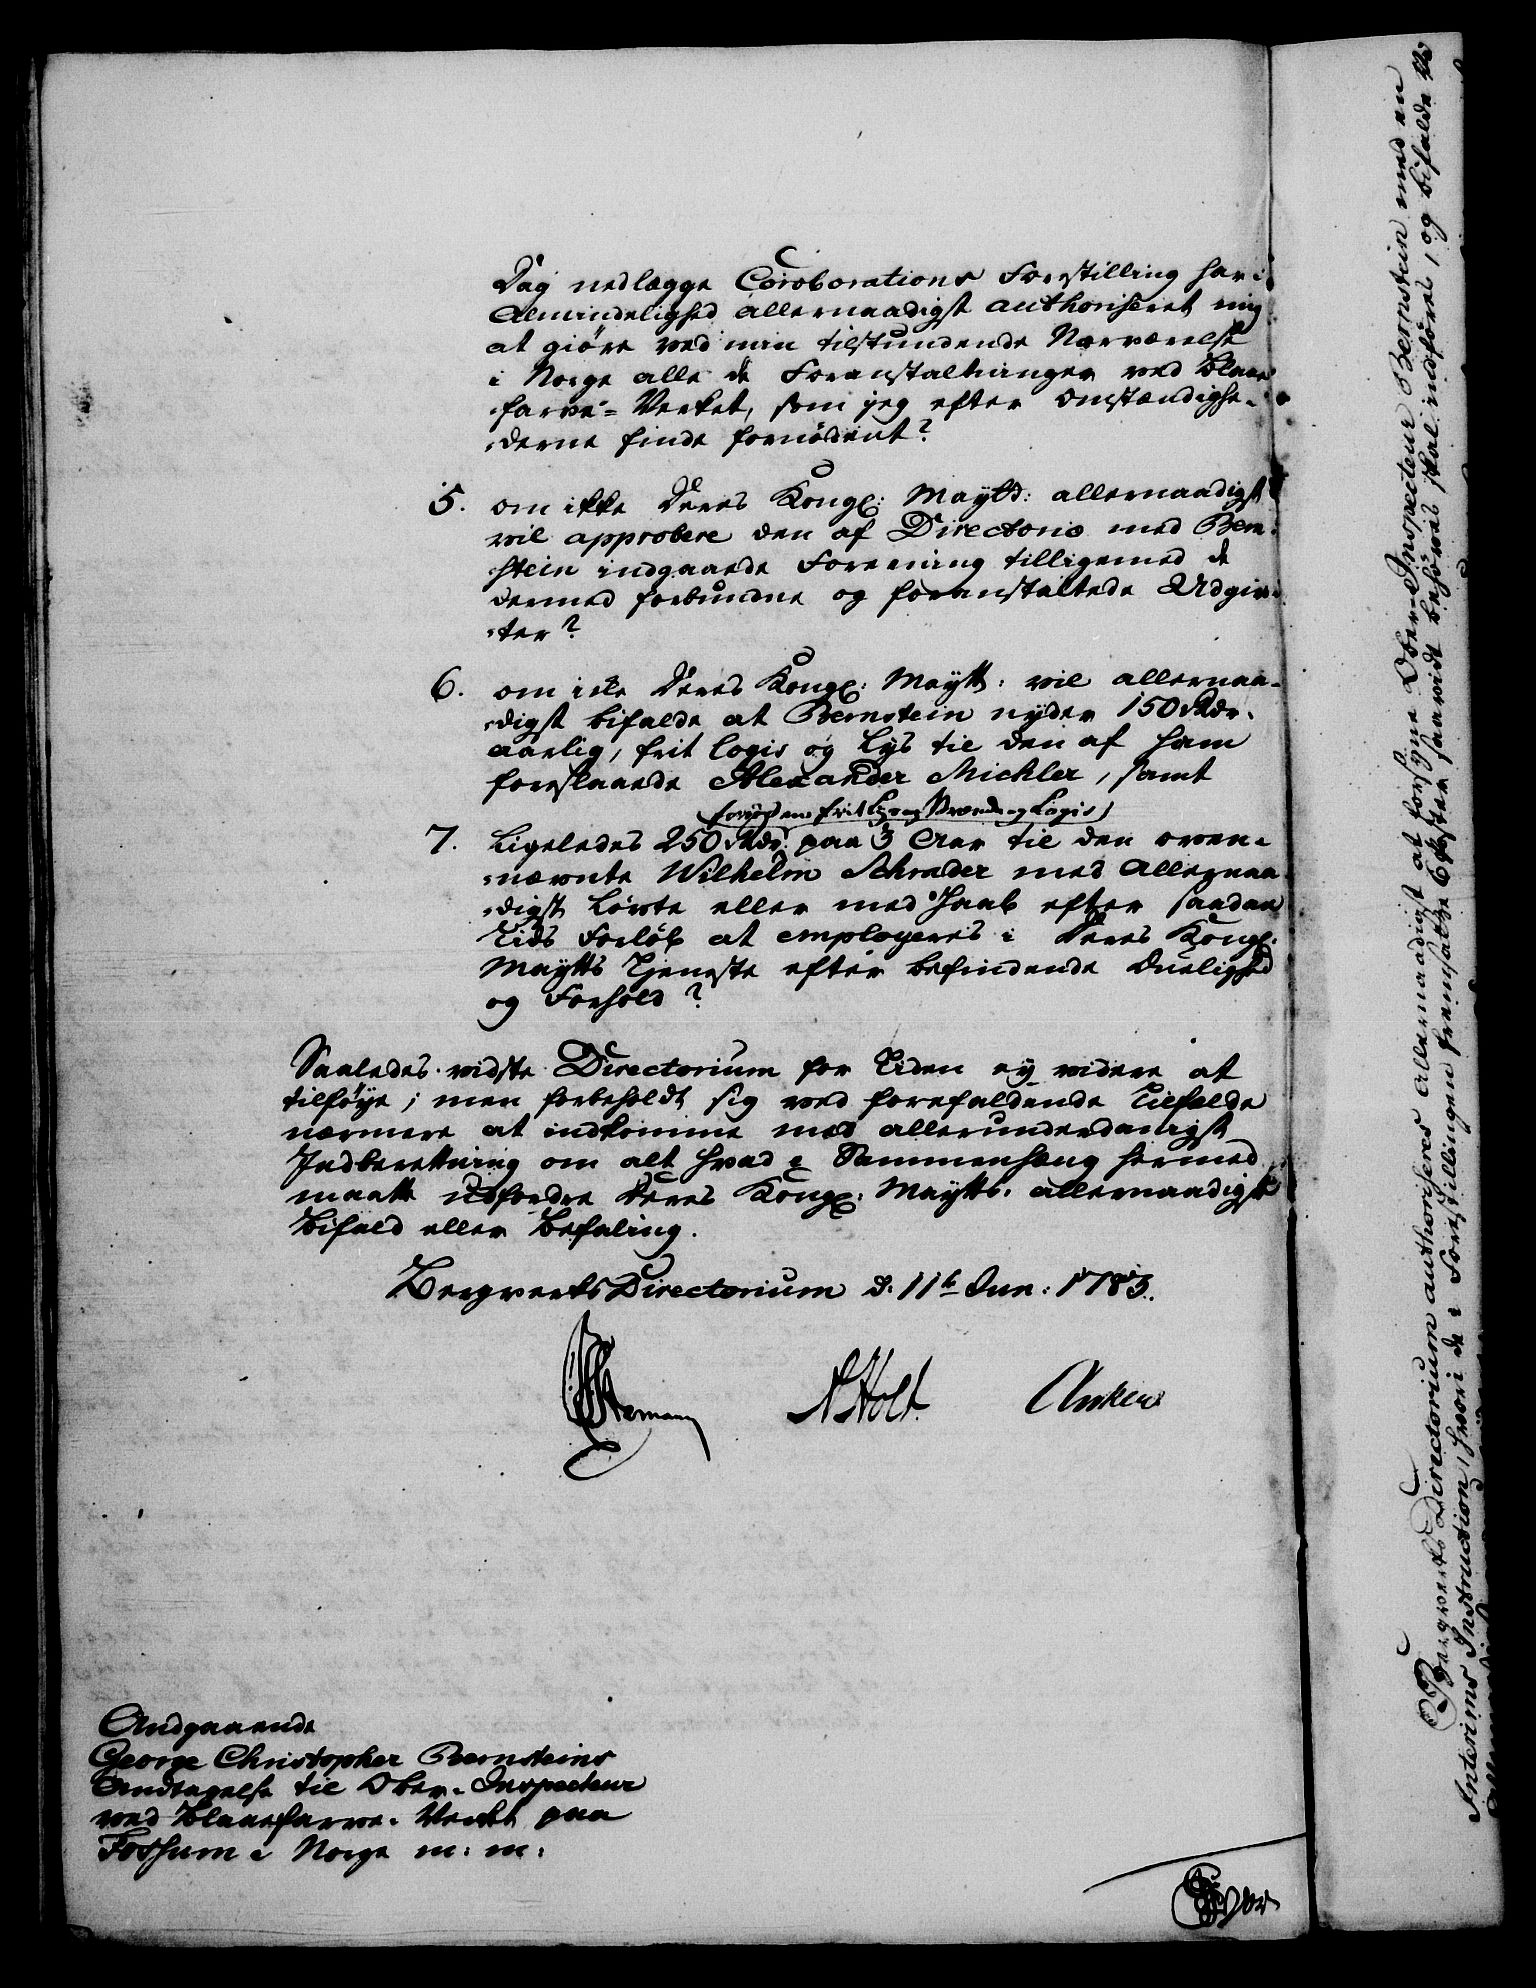 Dag nedlægge Coroborations Forestilling har i
Almindelighed allernaadigst authoriseret mig
at giøre ved min tilstundende Nærværelse
i Norge alle de Foranstaltninger ved Blaae
farve-Verket, som jeg efter Omstændighe-
derne finde fornødent?
5. om ikke Deres Kongl: Maytt: allernaadigst
vil approbere den af Directorio med Bern-
stein indgaaede Forening tilligemed de
dermed forbundne og foranstaltede Udgiv-
ter?
6. om ikke Deres Kongl: Maytt: vil allernaa-
digst bifalde at Bernstein nyder 150 Rdr.
aarlig, frit Logis og Lys til den af ham
foreslaaede Alexander Michler, samt
foruden frit Lys og Brænde og Logis
7. Ligeledes 250 Rdr. paa 3 Aar til den oven-
nævnte Wilhelm Schrader med Allernaa-
digst Løvte eller med Haab efter saadan
Tids Forløb at employeres i Deres Kongl.
Maytts Tjeneste efter befindende Duelighed
og Forhold?
Saaledes vidste Directorium for Tiden ey videre at
tilføye; men forbeholdt sig ved forefaldende Tilfælde
nærmere at indkomme med allerunderdanigst
Indberettning om alt hvad i Sammenhæng hermed
maatte udfordre Deres Kongl: Maytts. allernaadigste
Bifald eller Befaling.
Bergverks Directorium d. 11t Jun: 1783.
Stemann
Holt.
Anker
Andgaaende
George Christopher Bernsteins
Andtagelse til Ober-Inspecteur
ved Blaaefarve-Verket paa
Fossum i Norge m: m:
Bergverks Directorium authoriseres allernaadigst at forsyne Ober-Inspecteur Bernstein med en
Interims Instruction, hvori de i Forestillingen fremsatte 6 Poster saavidt behøves skal indføres, og bifalde Vi